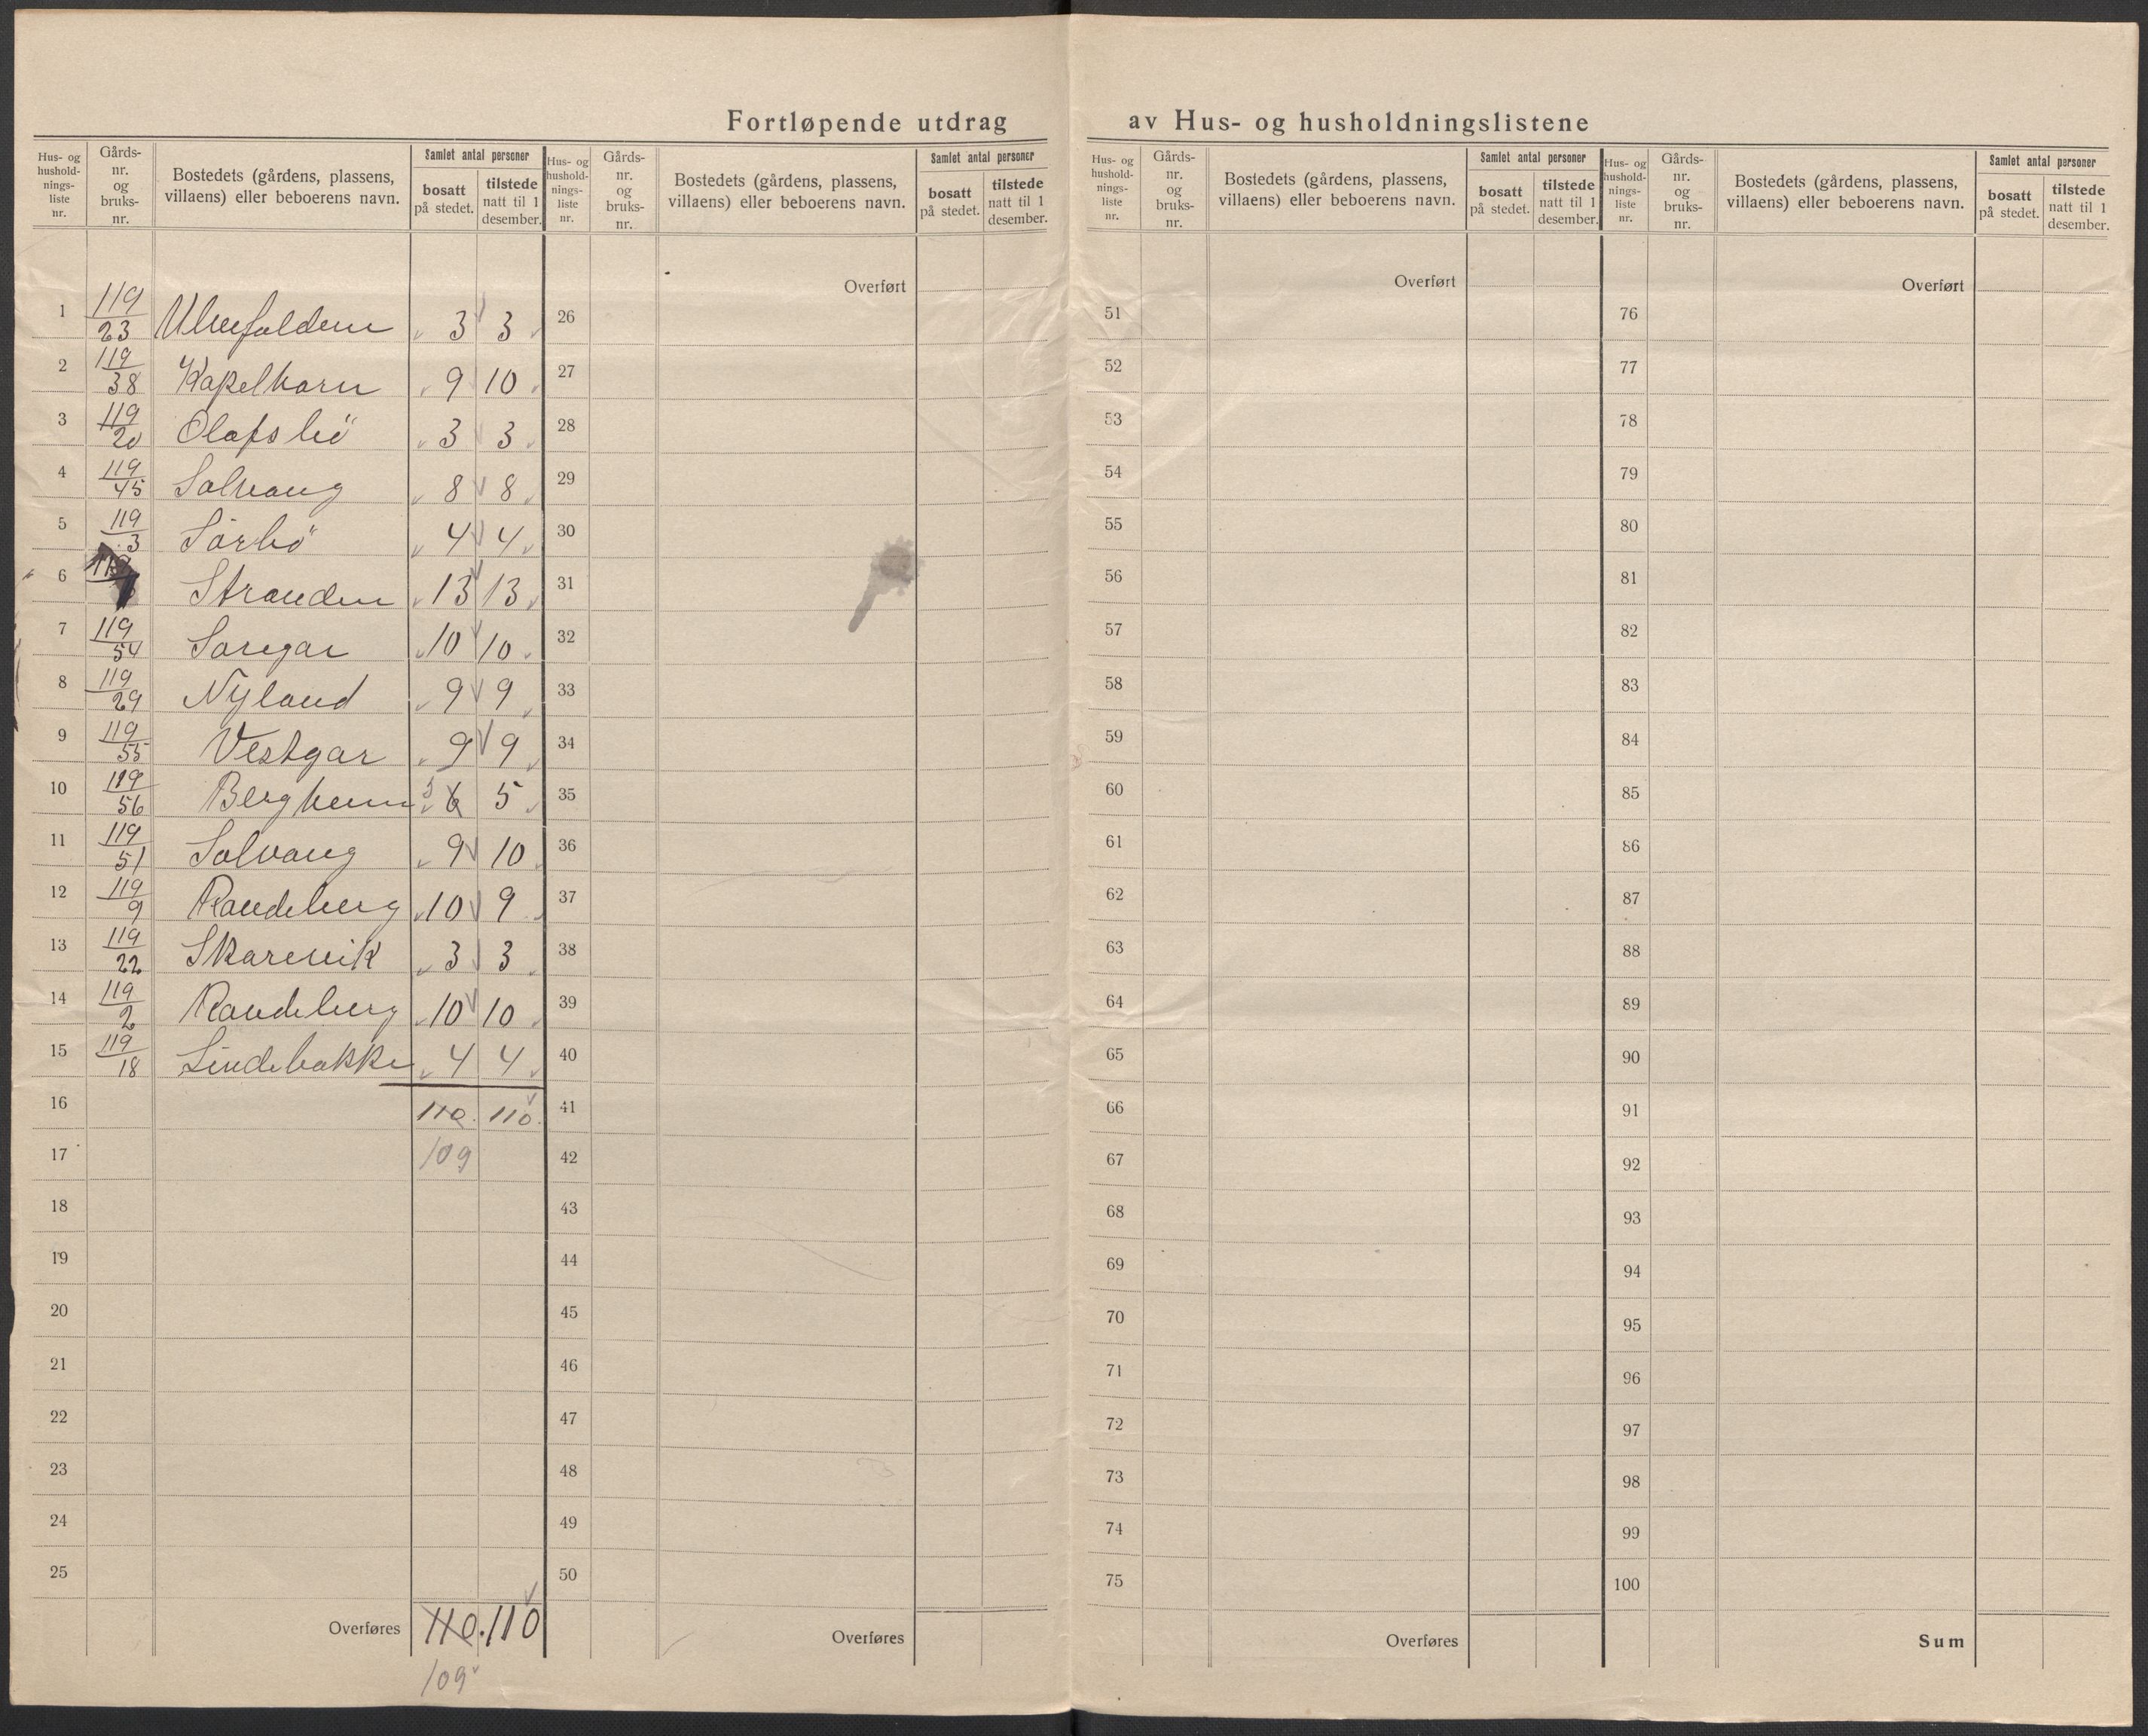 Fortløpende utdrag av Hus- og husholdningslistene
Hus- og hushold- nings- liste nr. | Gårds- nr. og bruks- nr. | Bostedets (gårdens, plassens, villaens) eller beboerens navn. | Samlet antal personer | bosatt på stedet. | tilstede natt til 1 desember.
Hus- og hushold- nings- liste nr. | Gårds- nr. og bruks- nr. | Bostedets (gårdens, plassens, villaens) eller beboerens navn. | Samlet antal personer | bosatt på stedet. | tilstede natt til 1 desember.
Hus- og hushold- nings- liste nr. | Gårds- nr. og bruks- nr. | Bostedets (gårdens, plassens, villaens) eller beboerens navn. | Samlet antal personer | bosatt på stedet. | tilstede natt til 1 desember.
Hus- og hushold- nings- liste nr. | Gårds- nr. og bruks- nr. | Bostedets (gårdens, plassens, villaens) eller beboerens navn. | Samlet antal personer | bosatt på stedet. | tilstede natt til 1 desember.
1 119/23 3 3
2 119/38 9 10
3 119/20 Olafsbö 3 3
4 119/45 Solvang 8 8
5 119/3 Sörbö 4 4
6 Stranden 13 13
7 119/54 Sörgar 10 10
8 119/29 Nyland 9 9
9 119/55 Vestgar 9 9
10 119/56 Bergheim 5 6 5
11 119/51 Solvang 9 10
12 119/9 Randeberg 10 9
13 119/22 Skarevik 3 3
14 119/2 Randeberg 10 10
15 119/18 Lindebakke 4 4
16 110. 110
17 109
18
19
20
21
22
23
24
25
Overføres 110. 110
109
Overført
26
27
28
29
30
31
32
33
34
35
36
37
38
39
40
41
42
43
44
45
46
47
48
49
50
Overføres
Overført
51
52
53
54
55
56
57
58
59
60
61
62
63
64
65
66
67
68
69
70
71
72
73
74
75
Overføres
Overført
76
77
78
79
80
81
82
83
84
85
86
87
88
89
90
91
92
93
94
95
96
97
98
99
100
Sum